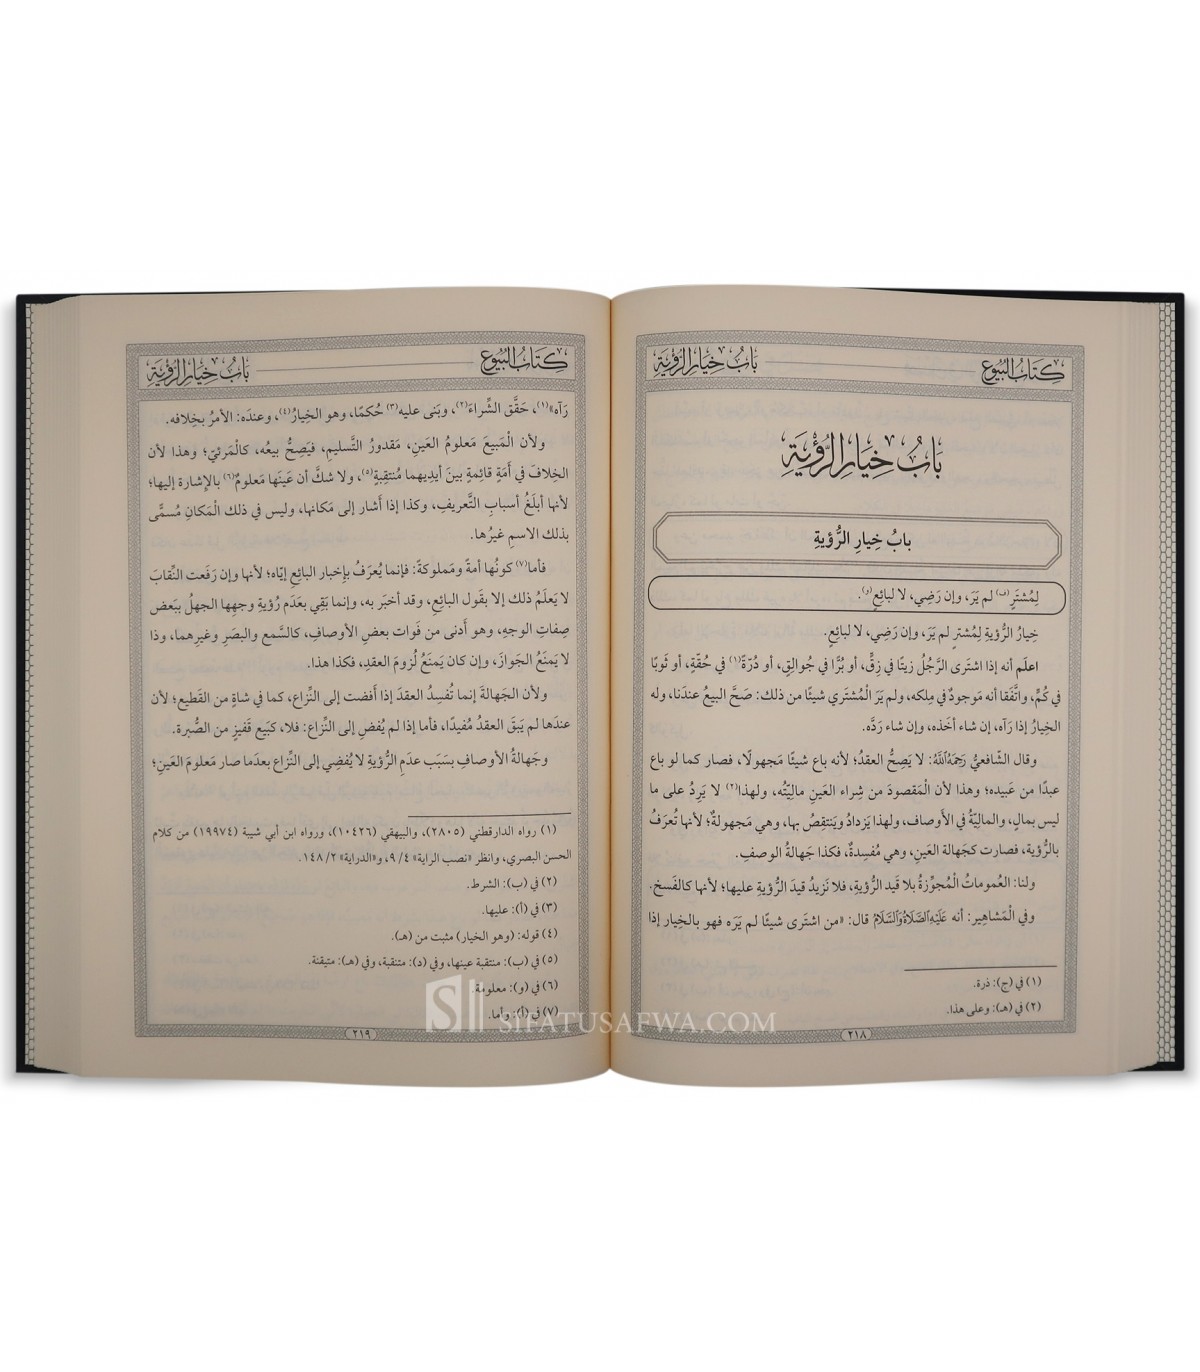 كتاب البيوع
باب خيار الرؤية
بَابُ خِيَارِ الرُّؤْيَةِ
بابُ خِيارِ الرُّؤيةِ
لِمُشتَرٍ (ف) لم يَرَ، وإن رَضِي، لا لبائعٍ (ز).
خِيارُ الرُّؤيةِ لِمُشترٍ لم يَرَ، وإن رَضِي، لا لبائعٍ.
اعلَم أنه إذا اشتَرى الرَّجُل زيتًا في زِقٍّ، أو بُرًّا في جُوالِق، أو دُرّةً(١) في حُقّة، أو ثَوبًا
في كُمٍّ، واتَّفَقا أنه مَوجودٌ في مِلكه، ولم يَرَ الْمُشتَري شيئًا من ذلك: صَحَّ البيعُ عندَنا، وله
الخِيارُ إذا رَآه، إن شاء أخَذه، وإن شاء رَدَّه.
وقال الشّافعيُّ رَحِمَهُ اللهُ: لا يَصِحُّ العقدُ؛ لأنه باع شيئًا مَجهولًا، فصار كما لو باع
عبدًا من عَبيده؛ وهذا لأن الْمَقصودَ من شِراء العَين ماليّتُه، ولهذا(٢) لا يَرِدُ على ما
ليس بمالٍ، والماليّةُ في الأوصاف، ولهذا يَزدادُ ويَنتقِصُ بها، وهي مَجهولةٌ؛ لأنها تُعرَفُ
بالرُّؤية، فصارت كجَهالة العَين، وهي مُفسِدةٌ، فكذا جَهالةُ الوصفِ.
ولنا: العُموماتُ الْمُجوِّزةُ بلا قَيد الرُّؤية، فلا نَزيدُ قيدَ الرُّؤية عليها؛ لأنها كالفَسخ.
وفي الْمَشاهير: أنه عَلَيْهِ الصَّلَاةُ وَالسَّلَامُ قال: «من اشتَرى شيئًا لم يَرَه فهو بالخِيار إذا
(١) في (ج): ذرة.
(٢) في (هـ): وعلى هذا.
٢١٨
كتاب البيوع
باب خيار الرؤية
رَآه»(١)، حَقَّق الشِّراءَ(٢)، وبَنى عليه(٣) حُكمًا، وهو الخِيارُ(٤)، وعندَه: الأمرُ بخِلافه.
ولأن الْمَبيعَ مَعلومُ العَينِ، مَقدورُ التَّسليمِ، فيَصِحُّ بيعُه، كالْمَرئيّ؛ وهذا لأن
الخِلافَ في أَمَةٍ قائمةٍ بينَ أيدِيهما مُنتقِبةٍ(٥)، ولا شكَّ أن عَينَها مَعلومٌ(٦) بالإشارة إليها؛
لأنها أبلَغُ أسبابِ التَّعريفِ، وكذا إذا أشار إلى مَكانها، وليس في ذلك الْمَكانِ مُسمًّى
بذلك الاسمِ غيرُها.
فأما(٧) كونُها أمةً ومَملوكةً: فإنما يُعرَفُ بإخبار البائعِ إيّاه؛ لأنها وإن رَفَعت النِّقابَ
لا يَعلَمُ ذلك إلا بقَول البائعِ، وقد أخبَر به، وإنما بَقِي بعدَم رُؤيةِ وجهِها الجهلُ ببَعض
صِفاتِ الوجهِ، وهو أدنى من فَوات بعضِ الأوصافِ، كالسَّمع والبصَر وغيرِهما، وذا
لا يَمنَعُ الجَوازَ، وإن كان يَمنَعُ لُزومَ العقدِ، فكذا هذا.
ولأن الجَهالةَ إنما تُفسِدُ العقدَ إذا أفضت إلى النِّزاع، كما في شاةٍ من القَطيع؛ لأن
عندَها لم يَبقَ العقدُ مُفيدًا، فأما إذا لم يُفضِ إلى النِّزاع: فلا، كبَيع قَفيزٍ من الصُّبرة.
وجَهالةُ الأوصافِ بسَبَب عدَمِ الرُّؤيةِ لا يُفضِي إلى النِّزاع بعدَما صار مَعلومَ العَينِ؛
(١) رواه الدارقطني (٢٨٠٥)، والبيهقي (١٠٤٢٦)، ورواه ابن أبي شيبة (١٩٩٧٤) من كلام
الحسن البصري، وانظر «نصب الراية» ٩/٤، و«الدراية» ١٤٨/٢.
(٢) في (ب): الشرط.
(٣) في (أ): عليها.
(٤) قوله: (وهو الخيار) مثبت من (هـ).
(٥) في (ب): منتقبة عينها، وفي (د): متنقبة، وفي (هـ): متيقنة.
(٦) في (و): معلومة.
(٧) في (أ): وأما.
٢١٩
SIFATUSAFWA.COM